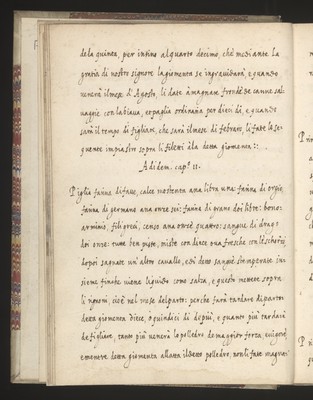 dela quinta, per infino alquarto decimo, che mediante la
gratia di nostro signore lagiomenta se ingravidarà, e quando
venerà ilmese di Agosto, li date à magnare fronde de canne sal-
uaggie con labiaua, e opaglia ordinaria per dieci dì, e quando
sarà il tempo di figliare, che sarà ilmese di febraro, li fate lo se-
quente impiastro sopra li filetti alla detta giomenta :·
Adidem. cap.º 11.
Piglia farina di faue, calce meza libra una: farina di orgio,
farina di germano ana onze sei: farina di grano doi libre: bono
arminio, fili greci, censo ana onze quattro: sangue di drago
doi onze: tutte ben piste, miste con dieci oua fresche con le scherze,
dopoi sagnate un'altro cauallo, et di detto sangue stemperate in-
sieme finche uiene liquido como salza, e questo mettete sopra
li rignoni, cioè nel mese del parto: perche farà tardare di partor
detta giomenta diece, ò quindici dì depiù, e quanto più tardarà
de figliare, tanto più venerà lo polledro de maggior forza, e uigore,
e mentre detta giomenta allatta il detto polledro, non li fate magnar